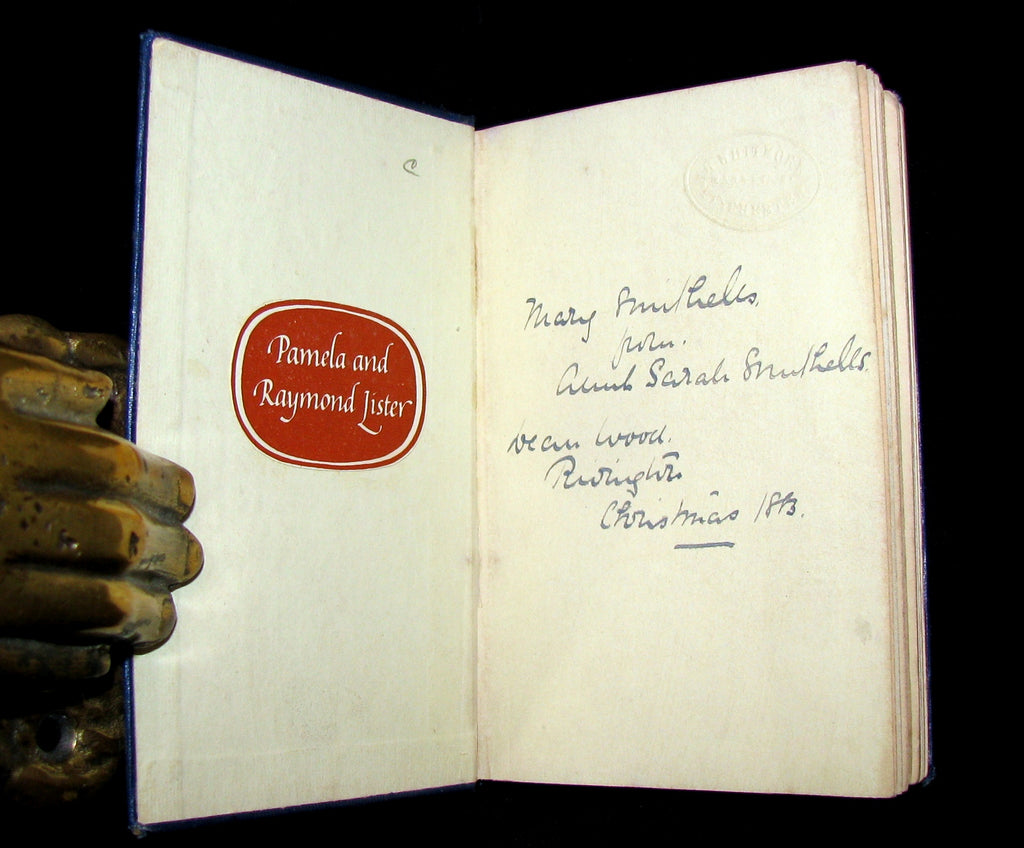 C
Pamela and
Raymond Lister
Mary Smithells.
from.
Aunt Sarah Smithells.
Dean Wood.
Rivington
Christmas